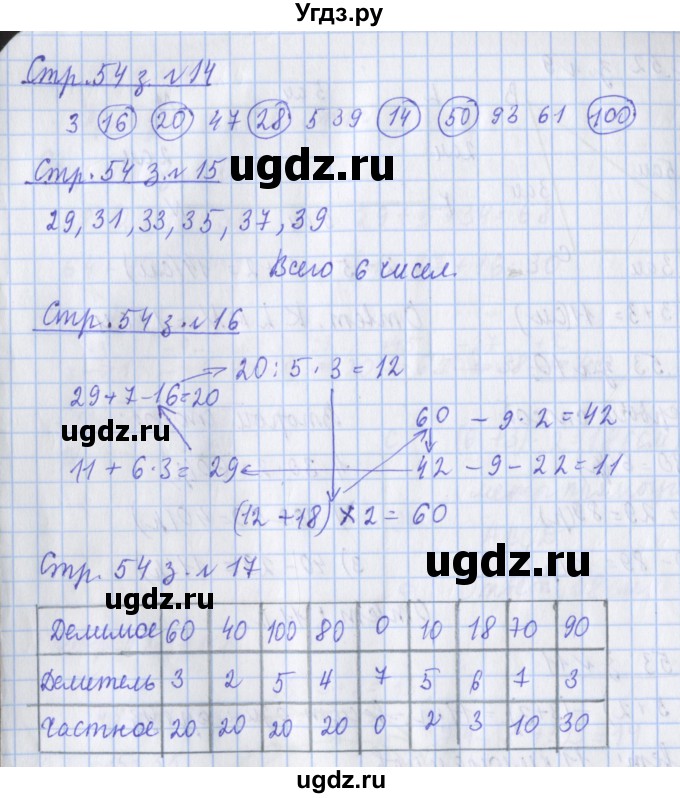 Угдз.ру
Стр. 54 з. №14
3 16 20 47 28 5 39 14 50 93 61 100
Стр. 54 з. № 15
ugdz.ru
29, 31, 33, 35, 37, 39
Всего 6 чисел.
Стр. 54 з. №16
20 : 5 · 3 = 12
29+7-16=20
60 - 9 · 2 = 42
ugdz.ru
ugdz.ru
11 + 6 · 3 = 29
42 - 9 - 22 = 11
(12 + 18) × 2 = 60
Стр. 54 з. № 17
ugdz.ru
ugdz.ru
Делимое 60 40 100 80 0 10 18 70 90
Делитель 3 2 5 4 7 5 6 7 3
Частное 20 20 20 20 0 2 3 10 30
ugdz.ru
ugdz.ru
ugdz.ru